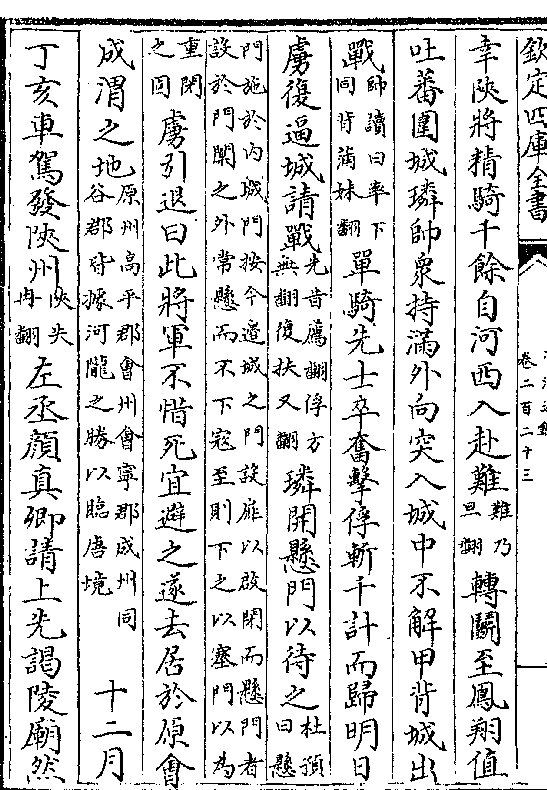 欽定四庫全書
卷二百二十三
幸陜將精騎千餘自河西入赴難難乃旦翻轉鬭至鳳翔值
吐蕃圍城璘帥衆持滿外向突入城中不解甲背城出
戰帥讀曰率下同背蒲妹翻單騎先士卒奮擊俘斬千計而歸明日
虜復逼城請戰先昔薦翻俘方無翻復扶又翻璘開懸門以待之杜預曰懸
門施於内城門按今邉城之門設扉以啟閉而懸門者
設於門闑之外常懸而不下寇至則下之以塞門以為
重閉之固虜引退曰此將軍不惜死宜避之遂去居於原會
成渭之地原州高平郡會州會寧郡成州同谷郡皆據河隴之勝以臨唐境十二月
丁亥車駕發陜州陜失冉翻左丞顔真卿請上先謁陵廟然